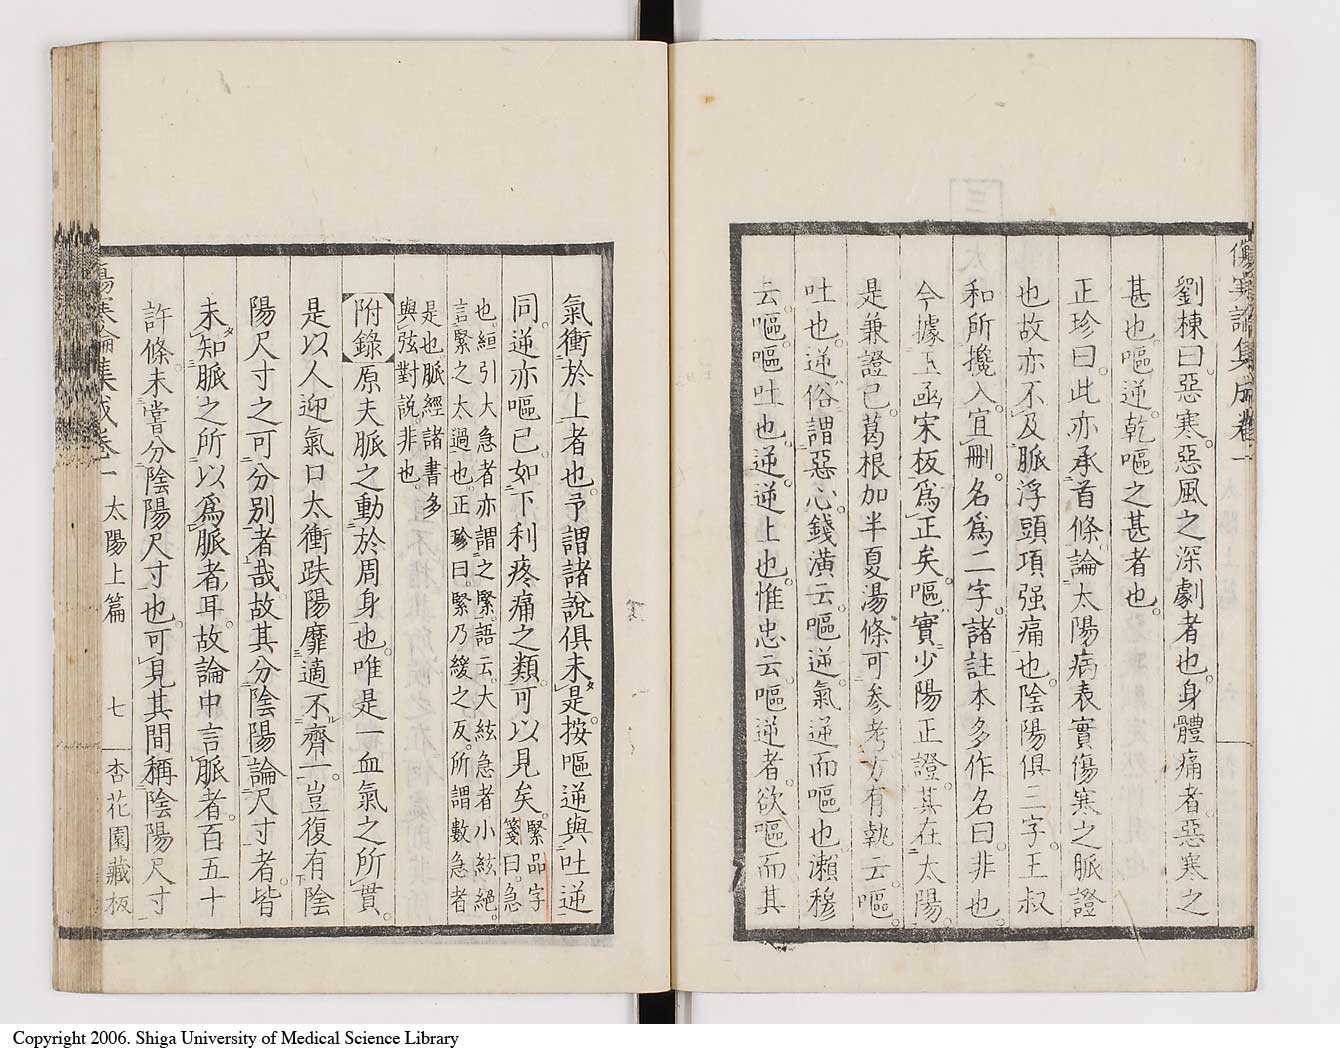 傷寒論集成卷一
劉棟曰。惡寒。惡風之深劇者也。身體痛者。惡寒之
甚也。嘔逆乾嘔之甚者也。
正珍曰。此亦承首條論太陽病表實傷寒之脈證
也。故亦不及脈浮頭項强痛也。陰陽俱三字。王叔
和所攙入。宜刪。名爲二字。諸註本多作名曰。非也。
今據玉函宋板爲正矣。嘔實少陽正證。其在太陽。
是兼證已。葛根加半夏湯條可參考。方有執云。嘔。
吐也。逆。俗謂惡心。錢潢云。嘔逆。氣逆而嘔也。瀨穆
云。嘔。嘔吐也。逆。逆上也。惟忠云。嘔逆者。欲嘔而其
氣衝於上者也。予謂諸說俱未是。按嘔逆與吐逆
同。逆亦嘔已。如下利疼痛之類。可以見矣。緊品字
箋曰。急
也。絙引大急者亦謂之緊。語云。大絃急者小絃絕。
言緊之太過也。正珍曰。緊乃緩之反。所謂數急者
是也。脈經諸書多
與弦對說。非也。
附錄 原夫脈之動於周身也。唯是一血氣之所貫。
是以人迎氣口太衝趺陽靡適不齊一。豈復有陰
陽尺寸之可分別者哉。故其分陰陽論尺寸者。皆
未知脈之所以爲脈者耳。故論中言脈者。百五十
許條。未嘗分陰陽尺寸也。可見其間稱陰陽尺寸
傷寒論集成卷一 太陽上篇 七 杏花園藏板
Copyright 2006. Shiga University of Medical Science Library